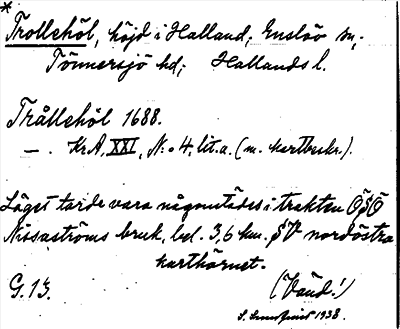 *
Trollehöl, höjd i Halland; Enslöv sn;
Tönnersjö hd; Hallands l.
Trållehöl 1688.
—. KrA, XXI, N:o 4, lit.a. (m. kartbeskr.).
Läget torde vara någonstädes i trakten ÖSÖ
Nissaströms bruk, bel. 3,6 km. SV nordöstra
karthörnet.
G. 13. (Vänd!)
1938.